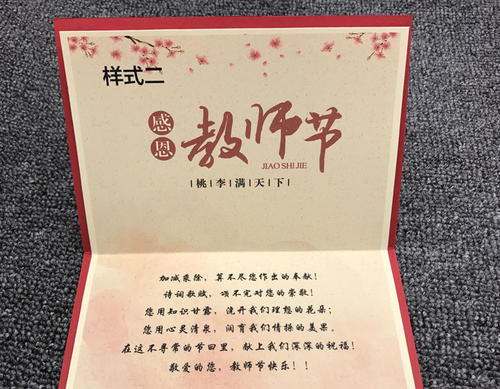 样式二
感恩
教师节
JIAO SHI JIE
桃李满天下
加减乘除，算不尽您作出的奉献！
诗词歌赋，颂不完对您的崇敬！
您用知识甘露，浇开我们理想的花朵；
您用心灵清泉，润育我们情操的美果。
在这不寻常的节日里，献上我们深深的祝福！
敬爱的您，教师节快乐！！